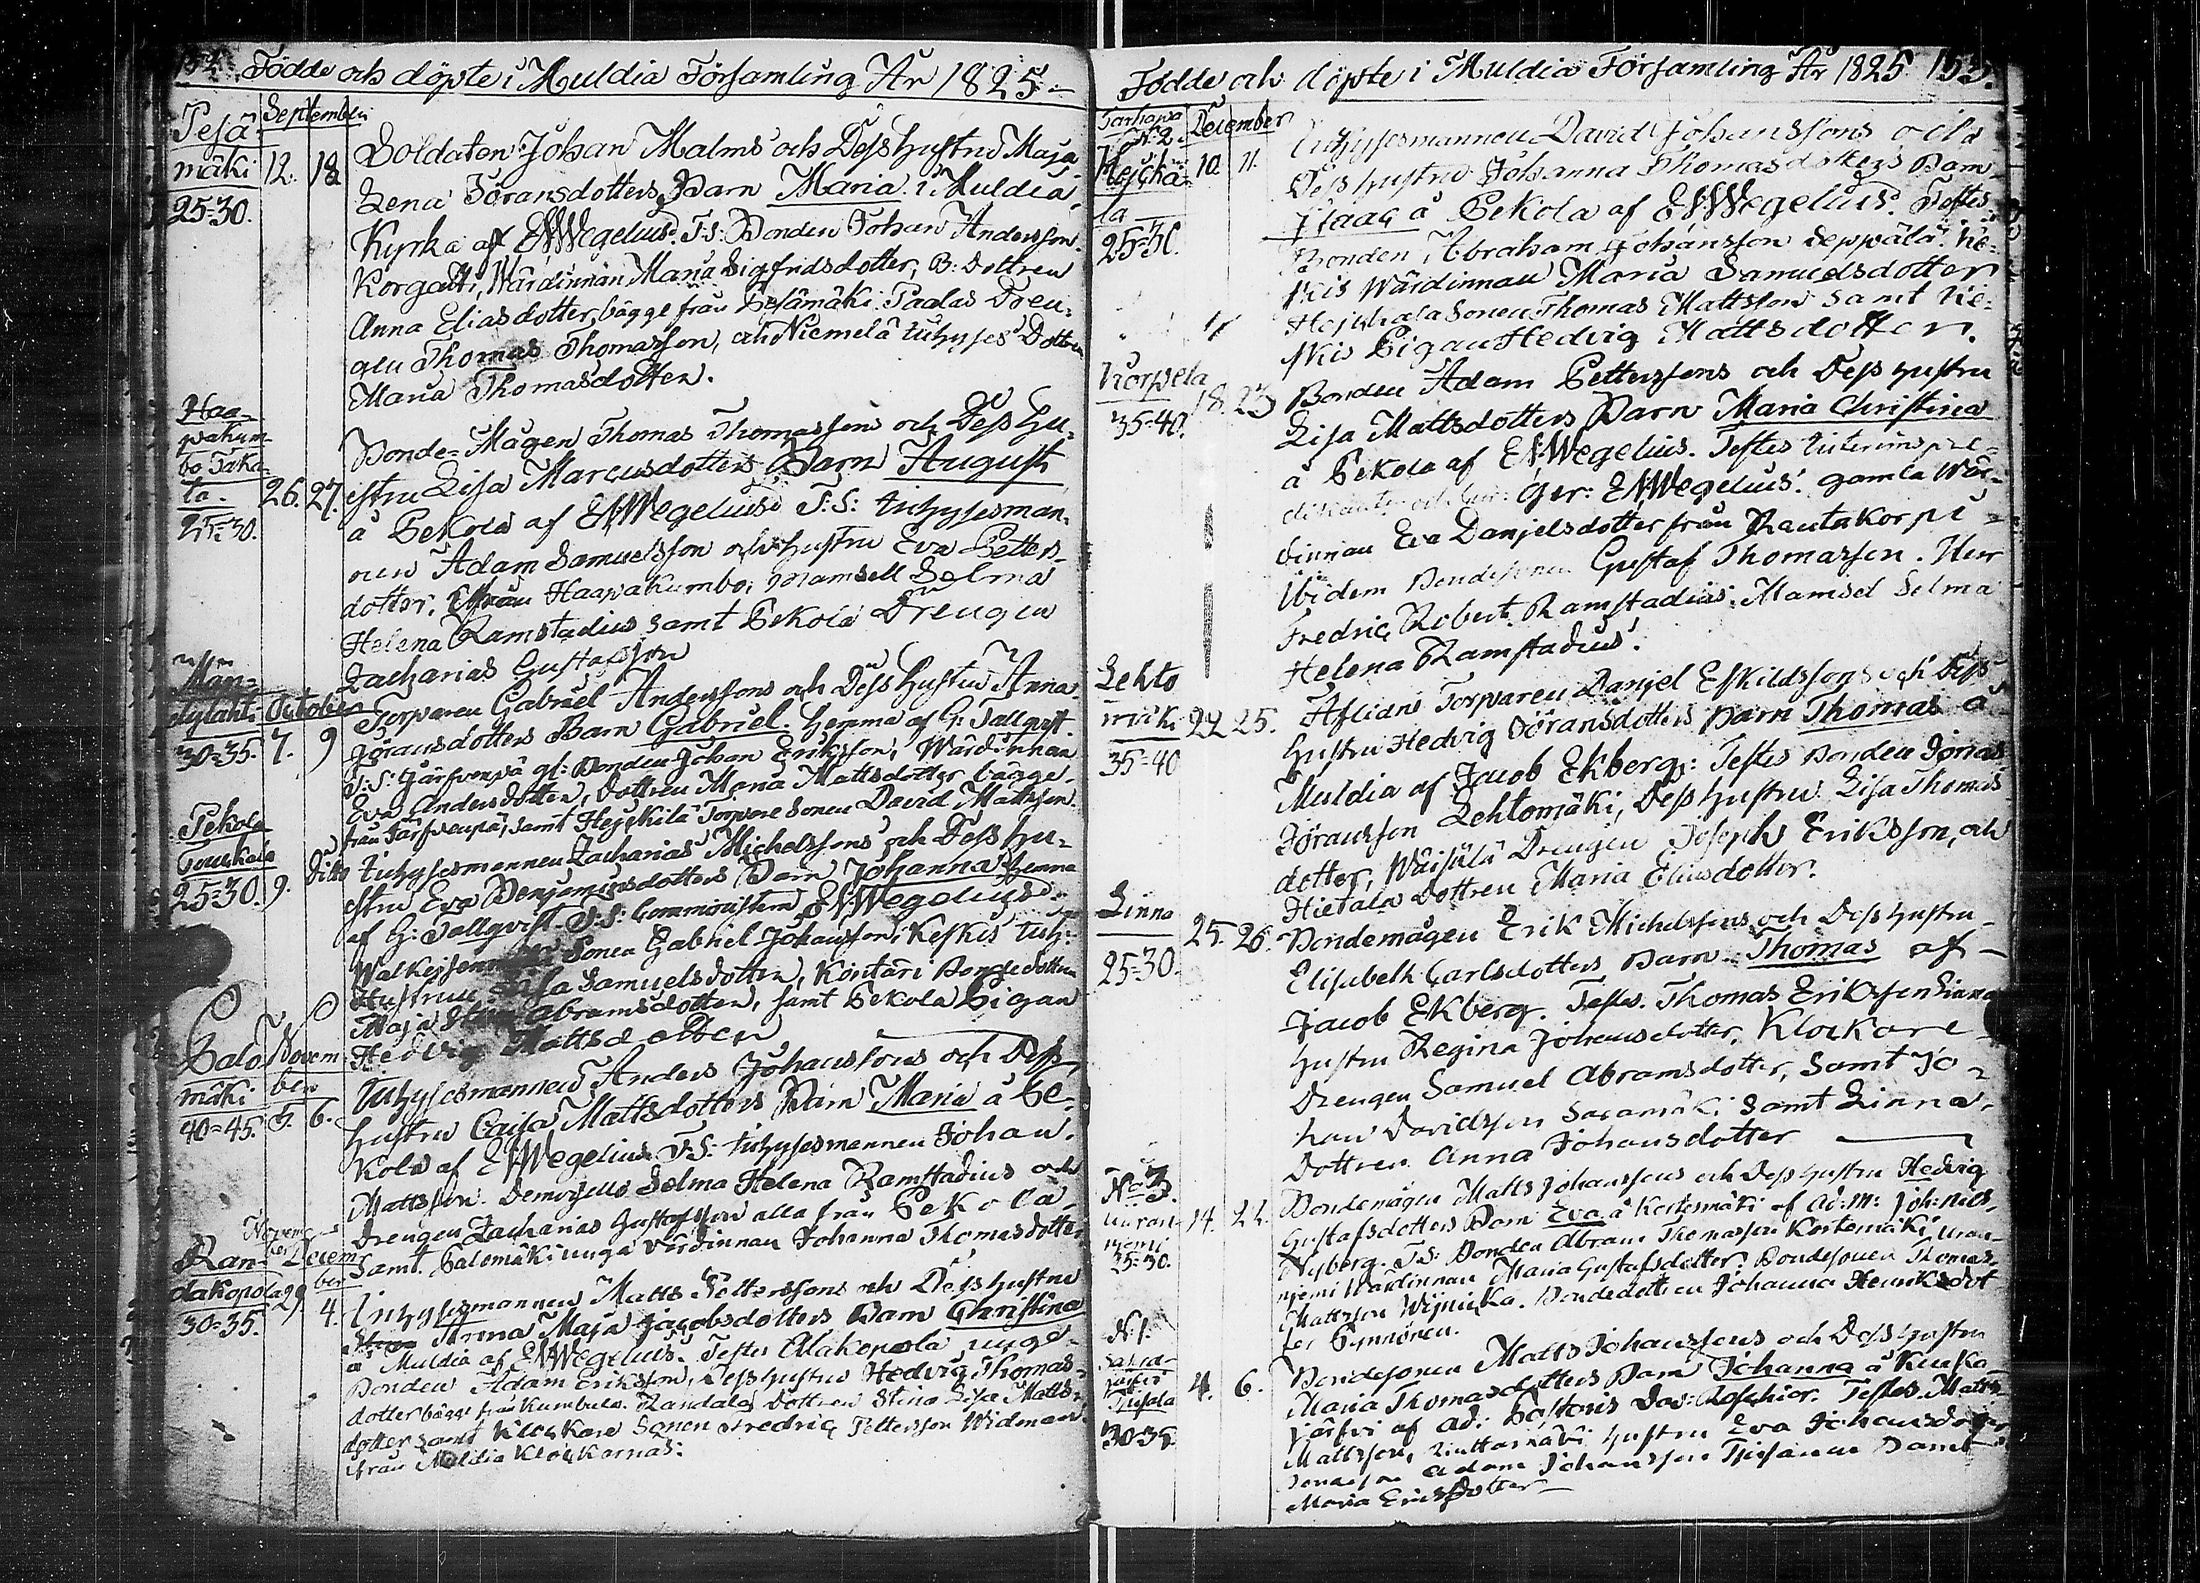 154. Födde och döpte i Muldia Församling År 1825.
Pesä- September
mäki 12. 18
25-30.
Soldaten Johan Malms och Dess Hustru Maja
Lena Göransdotters Barn Maria i Muldia
Kyrka af ENWegelius. T:S: Bonden Johan Andersson
Korgatti, Wärdinnan Maria Sigfridsdotter, B: Dottren
Anna Eliasdotter, bägge från Pesämäki. Paalas Dren-
gen Thomas Thomasson, och Niemelä Inhyses Dottren
Maria Thomasdotter.
Haa-
pakum-
bo Taka-
la. 26. 27.
25-30.
Bonde-Mågen Thomas Thomassons och Dess Hu-
stru Lisa Marcusdotters Barn August
å Pekola af ENWegelius T:S: Inhysesman-
nen Adam Samuelsson och Hustru Eva Petters-
dotter, från Haapakumbo, Mamsell Selma
Helena Ramstadius samt Pekola Drengen
Zacharias Gustafsson
Män-
October
30-35. 7. 9
Torparen Gabriel Anderssons och Dess Hustru Anna
Göransdotters Barn Gabriel. Hemma af G: Tallqvist.
T:S: Järfvenpä gl: Bonden Johan Eriksson, Wärdinnan
Eva Andersdotter, Dottren Maria Mattsdotter bägge
från Järfvenpä, samt Hejskilä Torpare Sonen David Mattsson
Pekola
25-30. 9. Dito
Inhysesmannen Zacharias Michelssons och Dess Hu-
stru Eva Benjaminsdotters Barn Johanna Hemma
af G: Tallqvist. T:S: Comministern ENWegelius
Sonen Gabriel Johansson, Keskis Inh:
Hustrun Lisa Samuelsdotter, Köntäri Bondedottren
Maja Stina Abramsdotter, samt Pekola Pigan
Hedvig Mattsdotter
Salo- Novem-
mäki ber
40-45. 5. 6.
Inhysesmannen Anders Johanssons och Dess
Hustru Caisa Mattsdotters Barn Maria å Pe-
kola af ENWegelius T:S: Inhysesmannen Johan
Mattsson. Demoiselle Selma Helena Ramstadius och
Drengen Zacharias Gustafsson alla från Pekola
Samt Salomäki unga Värdinnan Johanna Thomasdotter
Novem-
ber
Ran- Decem-
dakopola 29 ber
30-35. 4.
Inhysesmannen Matts Petterssons och Dess Hustru
Anna Maja Jacobsdotters Barn Christina
å Muldia af ENWegelius. Testes Alakopola unge
Bonden Adam Eriksson, Dess Hustru Hedvig Thomas-
dotter bägge från Kumbula. Randala Dottren Stina Lisa Matts-
dotter samt Klockare Sonen Fredric Pettersson Widman
från Muldia Klockarnas.
Födde och döpte i Muldia Församling År 1825. 155.
N:2. December
Hejchä- 10. 11.
la
25-30.
Inhysesmannen David Johanssons och
Dess Hustru Johanna Thomasdotters Barn
Isaac å Pekola af ENWegelius. Testes
Bonden Abraham Johansson Seppälä. Ke-
skis Wärdinnan Maria Samuelsdotter
Hejchala Sonen Thomas Mattsson samt Ke-
skis Pigan Hedvig Mattsdotter.
Korpela 18. 23
35-40.
Bonden Adam Petterssons och Dess Hustru
Lisa Mattsdotters Barn Maria Christina
å Pekola af ENWegelius. Testes Interims pre-
dikanten ENWegelius. gamla Wär-
dinnan Eva Danjelsdotter från Rautakorpi
Ibidem Bondesonen Gustaf Thomasson. Herr
Fredric Robert Ramstadius. Mamsel Selma
Helena Ramstadius.
Lehto
mäki 22 25.
35-40
Aflidne Torparen Danjel Eskildssons och Dess
Hustru Hedvig Göransdotters Barn Thomas å
Muldia af Jacob Ekberg: Testes Bonden Jonas
Göransson Lehtomäki, Dess Hustru Lisa Thomas-
dotter, Wäisälä Drengen Joseph Eriksson, och
Hietala Dottren Maria Eliasdotter.
Linna 25. 26.
25-30.
Bondemågen Erik Michelssons och Dess Hustru
Elisabeth Carlsdotters Barn Thomas af
Jacob Ekberg. Testes. Thomas Eriksson Linna
Hustru Regina Johansdotter, Klockare
Drengen Samuel Abramsdotter, Samt Jo-
han Davidsson Saramäki Samt Linna
Dottren Anna Johansdotter
No 3.
14. 21.
25-30.
Bondemågen Matts Johanssons och Dess Hustru Hedvig
Gustafsdotters Barn Eva å Kortemäki af Ad: M: Joh: Nicl.
Nyberg. T:S: Bonden Abram Thomasson Kortemäki,
Wärdinnan Maria Gustafsdotter. Bondesonen Thomas
Mattsson. Bondedottren Johanna Henriksdot
ter Pynnönen.
N:1.
4. 6.
30-35
Bondesonen Matts Johanssons och Dess Hustru
Maria Thomasdotters Barn Johanna å
järfvi af Ad: Pastoris Dav: Roschier. Testes Matts
Mattsson, Hustru Eva Johansdotter
Adam Johansson Samt
Maria Ericsdotter